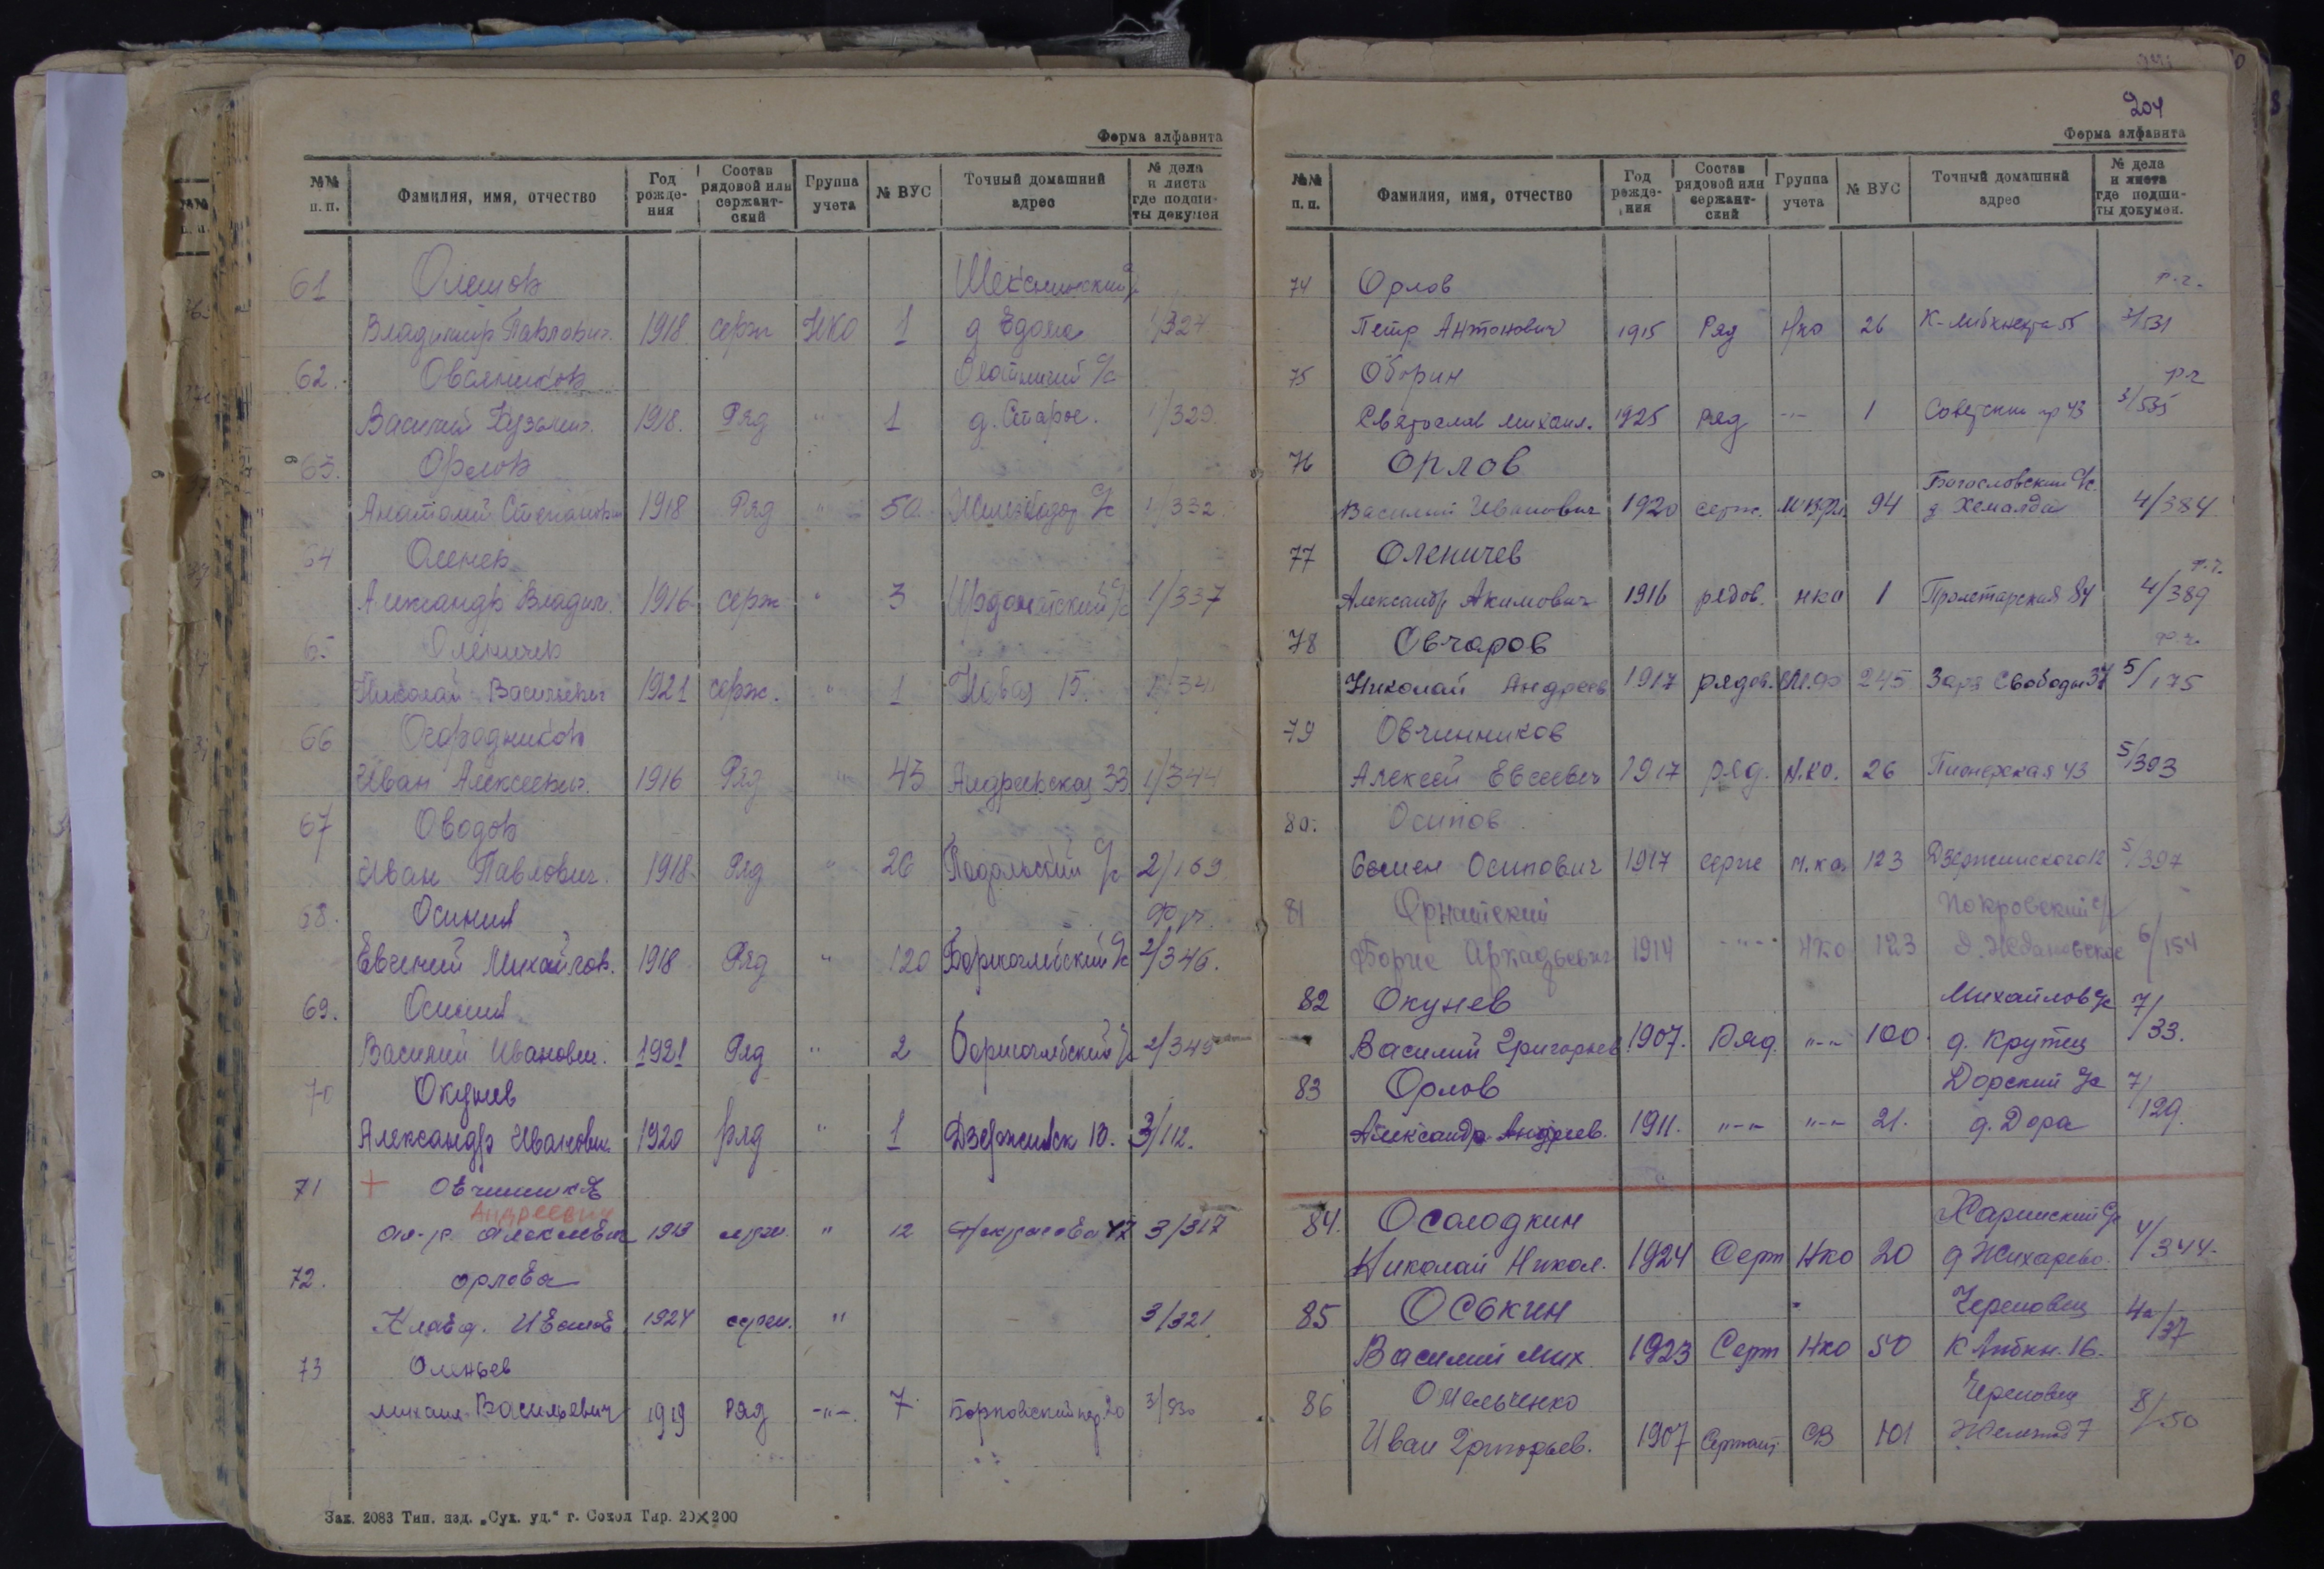 Форма алфавита
№№ п. п. Фамилия, имя, отчество Год рождения Состав рядовой или сержантский Группа учета № ВУС Точный домашний адрес № дела и листа где подшиты докумен
61 Олешов Шекснинский с/с
Владимир Павлович. 1918. серж НКО 1 д 1/327
62. Овсяников с/с
Василий Кузьмич. 1918. Ряд " 1 д. Старое. 1/329
63. Орлов
Анатолий Степанович 1918 Ряд " 50 с/с 1/332
64 Оленев
Александр Владим. 1916 серж " 3 Ирдоматский с/с 1/337
65 Оленичев
Николай Васильевич 1921 серж. " 1 Новая 15. 1/341
66 Огородников
Иван Алексеевич. 1916 Ряд " 43 Андреевская 33 1/344
67 Оводов
Иван Павлович. 1918 Ряд " 26 Подольский с/с 2/169
68. Осинин
Евгений Михайлов. 1918 Ряд " 120 Борисоглебский с/с 2/346.
69. Осинин
Василий Иванович. 1921 Ряд " 2 Борисоглебский с/с 2/349
70 Окунев
Александр Иванович 1920 ряд " 1 Дзержинск 10. 3/112.
71 + Овчинников
Андреевич
Ал-р. Алексеевич 1913 серж. " 12 Некрасова 47 3/317
72. Орлова
Клавд. Иванов. 1924 серж. " 3/321
73 Оленьев
Михаил Васильевич 1919 Ряд -"-. 7 Борковский пер 20 3/530
Зак. 2083 Тип. изд. „Сух. уд.“ г. Сокол Тир. 20×200
204
Форма алфавита
№№ п. п. Фамилия, имя, отчество Год рождения Состав рядовой или сержантский Группа учета № ВУС Точный домашний адрес № дела и листа где подшиты докумен.
74 Орлов р.г.
Петр Антонович 1915 Ряд Нко 26 К-Либкнехта 55 3/531
75 Оборин р.г
Святослав Михаил. 1925 ряд -"- 1 Советский пр 43 3/535
76 Орлов Богословский с/с.
Василий Иванович 1920 серж. 94 д Хемалда 4/384
77 Оленичев р.г.
Александр Акимович 1916 рядов. нко 1 Пролетарская 84 4/389
78 Овчаров
Николай Андреев 1917 рядов. 245 Заря Свободы 37 5/175
79 Овчинников
Алексей Евсеевич 1917 ряд. Н.ко. 26 Пионерская 43 5/393
80. Осипов
Семен Осипович 1917 серж н.ко. 123 Дзержинского 12 5/397
81 Орнатский Покровский с/с
Борис Аркадьевич 1914 -"- НКо 123 д. Ждановское 6/154
82 Окунев Михайлов с/с 7/
Василий Григорьев 1907. Ряд. "-" 100. д. Крутец 33.
83 Орлов Дорский с/с 7/
Александр Андреев. 1911. "-" "-" 21. д. Дора 129.
84. Осолодкин Харинский с/с
Николай Никол. 1924 Серж Нко 20 д Жихарево. 4/344.
85 Оськин Череповец 4а/
Василий Мих. 1923 Серж Нко 50 К Либкн. 16. 37
86 Омельченко Череповец
Иван Григорьев. 1907 Сержант СВ 101 7 8/50